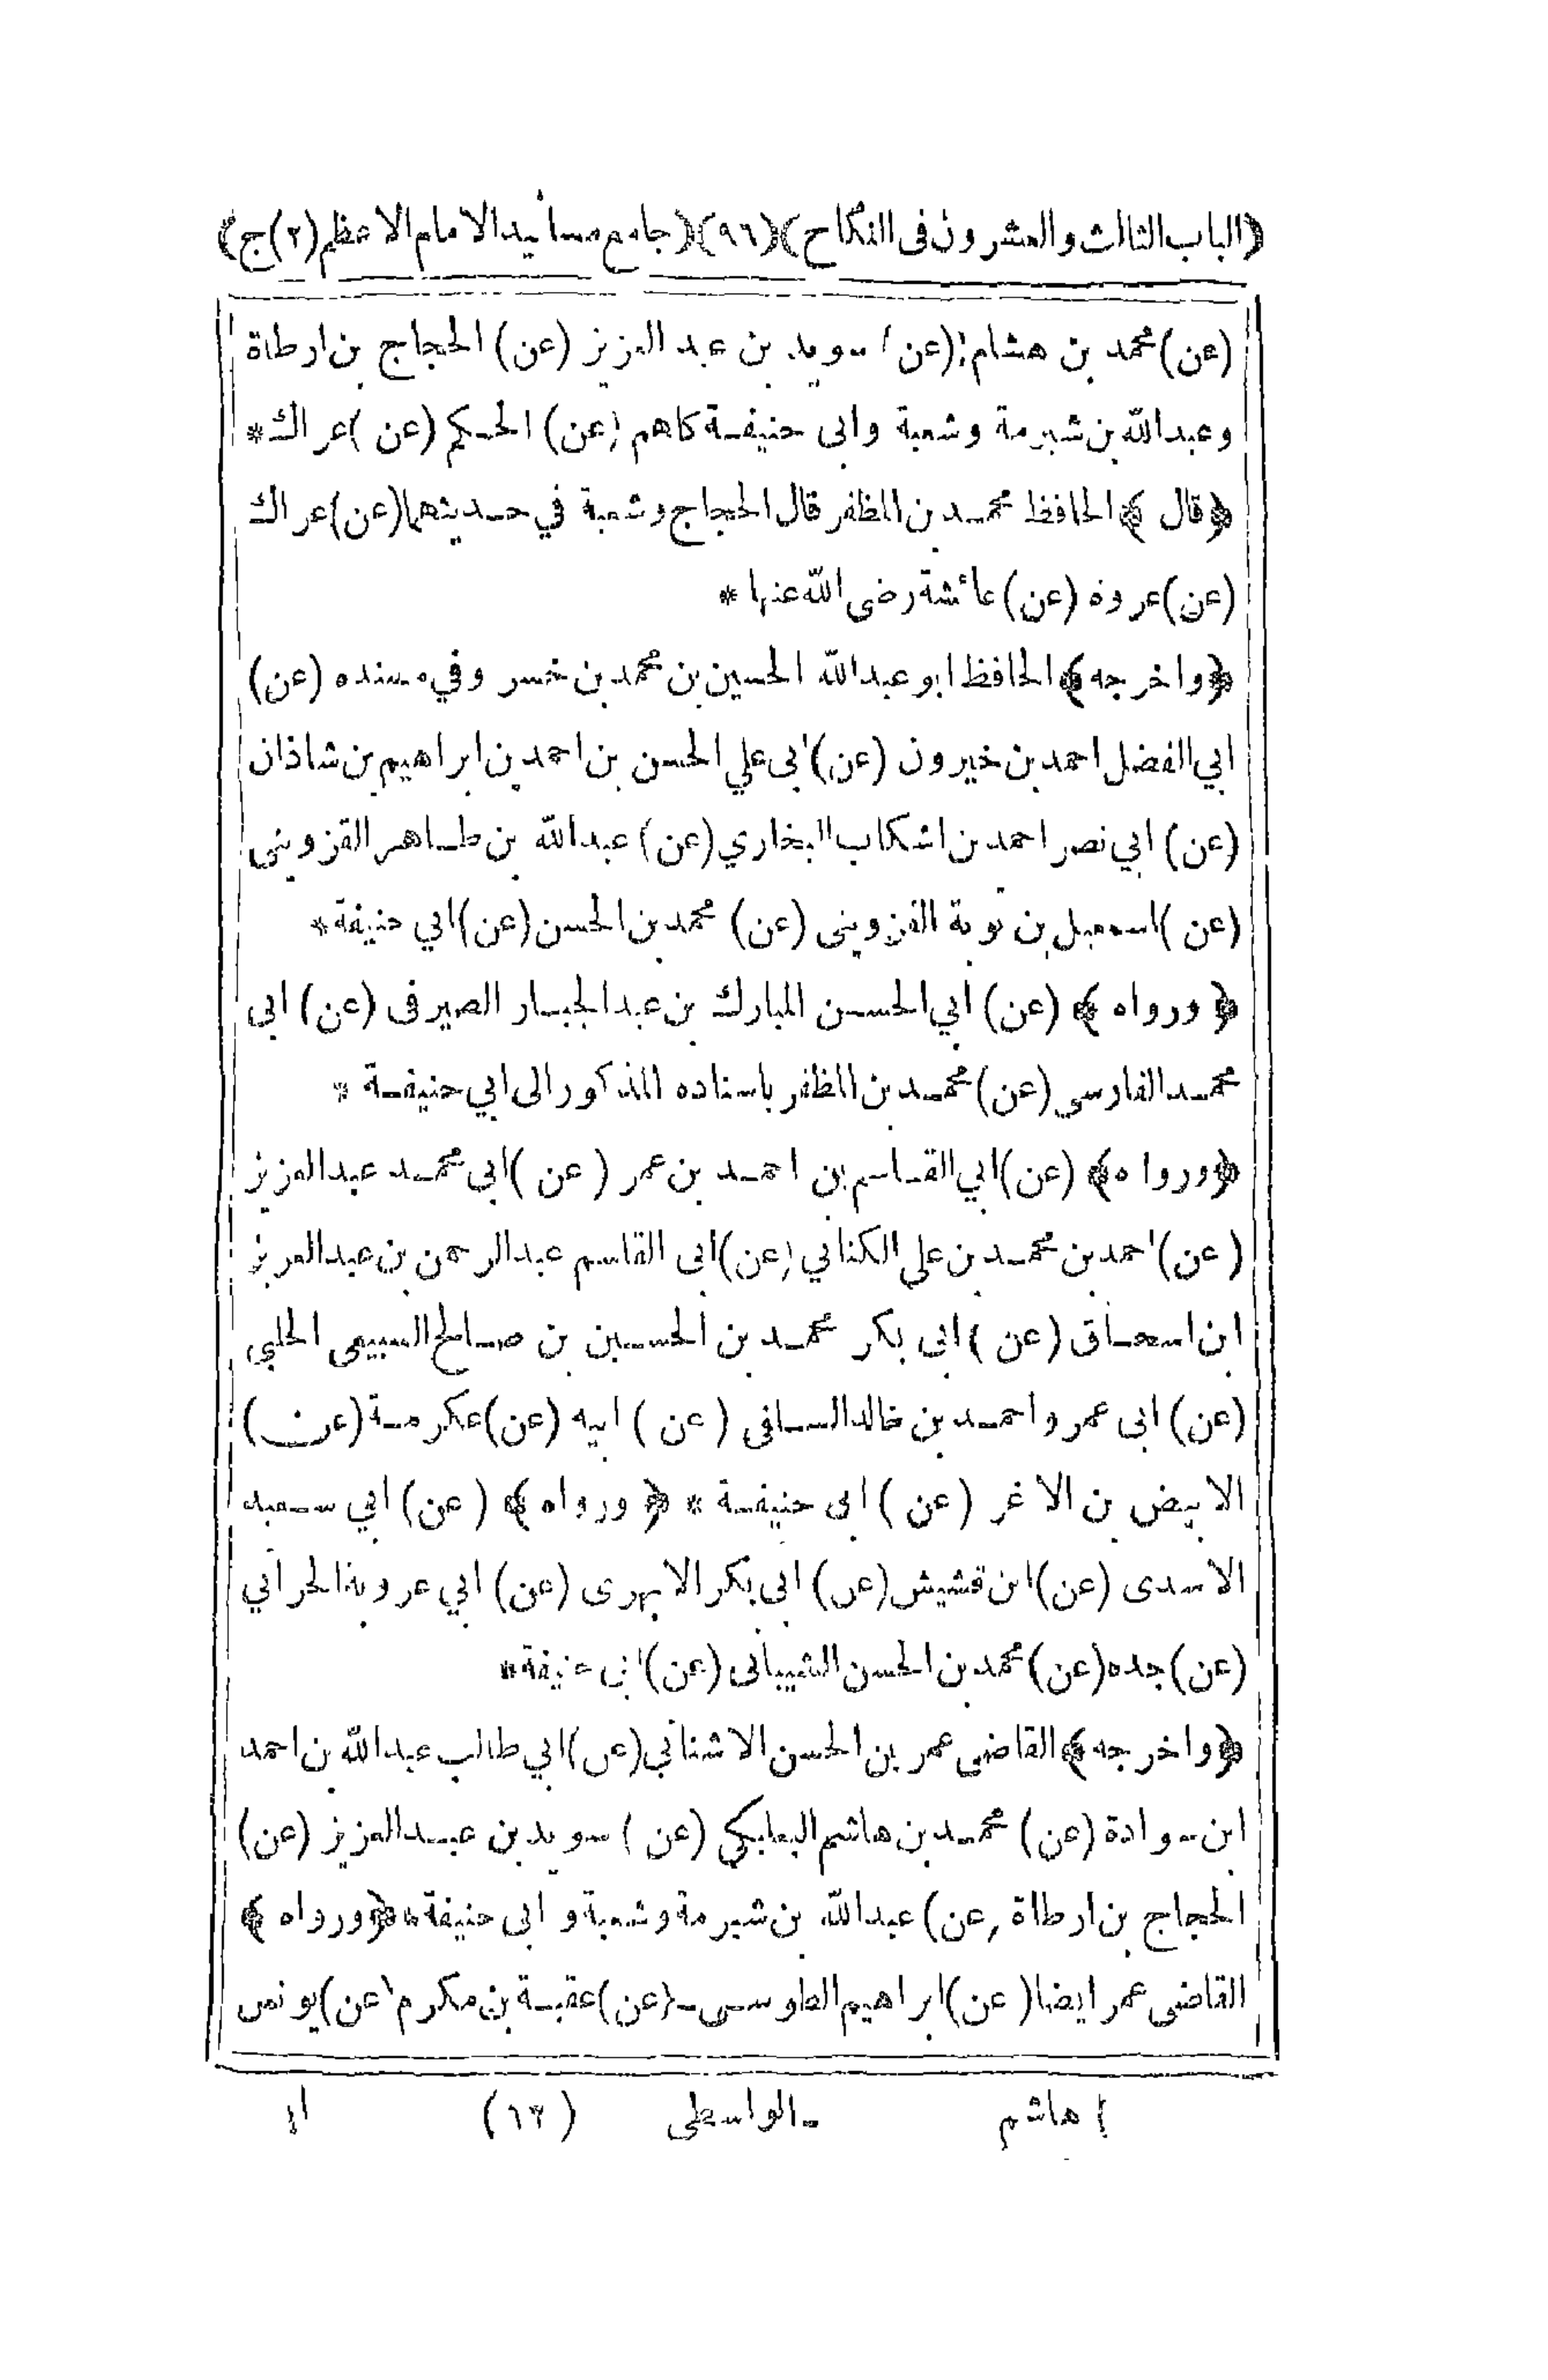 ﴿الباب الثالث والعشرون فى النكاح﴾(٩٦)﴿جامع مسانيد الامام الاعظم(٢)ج﴾
(عن) محمد بن هشام (عن) سويد بن عبد العزيز (عن) الحجاج بن ارطاة
وعبدالله بن شبرمة وشعبة وابى حنيفة كلهم (عن) الحكم (عن) عراك *
﴿قال﴾ الحافظ محمد بن المظفر قال الحجاج وشعبة في حديثهما (عن) عراك
(عن) عروة (عن) عائشة رضى الله عنها *
﴿واخرجه﴾ الحافظ ابو عبدالله الحسين بن محمد بن خسرو في مسنده (عن)
ابي الفضل احمد بن خيرون (عن) ابى علي الحسن بن احمد بن ابراهيم بن شاذان
(عن) ابي نصر احمد بن اشكاب البخاري (عن) عبدالله بن طاهر القزوينى
(عن) اسمعيل بن توبة القزوينى (عن) محمد بن الحسن (عن) ابي حنيفة *
﴿ورواه﴾ (عن) ابي الحسن المبارك بن عبدالجبار الصيرفى (عن) ابى
محمد الفارسى (عن) محمد بن المظفر باسناده المذكور الى ابي حنيفة *
﴿ورواه﴾ (عن) ابي القاسم بن احمد بن عمر (عن) ابي محمد عبدالعزيز
(عن) احمد بن محمد بن على الكنانى (عن) ابى القاسم عبدالرحمن بن عبدالعزيز
ابن اسحاق (عن) ابى بكر محمد بن الحسين بن صالح السبيعى الحلبي
(عن) ابى عمرو احمد بن خالد السلفى (عن) ابيه (عن) عكرمة (عن)
الابيض بن الاغر (عن) ابى حنيفة * ﴿ورواه﴾ (عن) ابي سعيد
الاسدى (عن) ابن قشيش (عن) ابى بكر الابهرى (عن) ابي عروبة الحراني
(عن) جده (عن) محمد بن الحسن الشيبانى (عن) ابى حنيفة *
﴿واخرجه﴾ القاضى عمر بن الحسن الاشنانى (عن) ابي طالب عبدالله بن احمد
ابن سوادة (عن) محمد بن هاشم البعلبكي (عن) سويد بن عبدالعزيز (عن)
الحجاج بن ارطاة (عن) عبدالله بن شبرمة وشعبة وابى حنيفة * ﴿ورواه﴾
القاضى عمر ايضا (عن) ابراهيم الطوسى (عن) عقبة بن مكرم (عن) يونس
هاشم الواسطى (١٢)